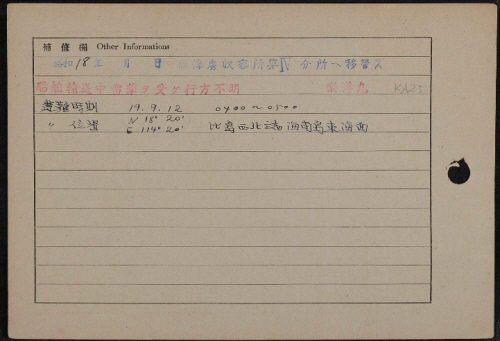 補修欄 Other Informations
昭和18年 月 日 收容所第 分所ヘ移管ス
船舶輸送中雷撃ヲ受ケ行方不明 楽洋丸 KAZ
遭難時期 19.9.12 0400〜0500
〃 位置 N 18° 20' E 114° 20' 比島西北端海南島東海面